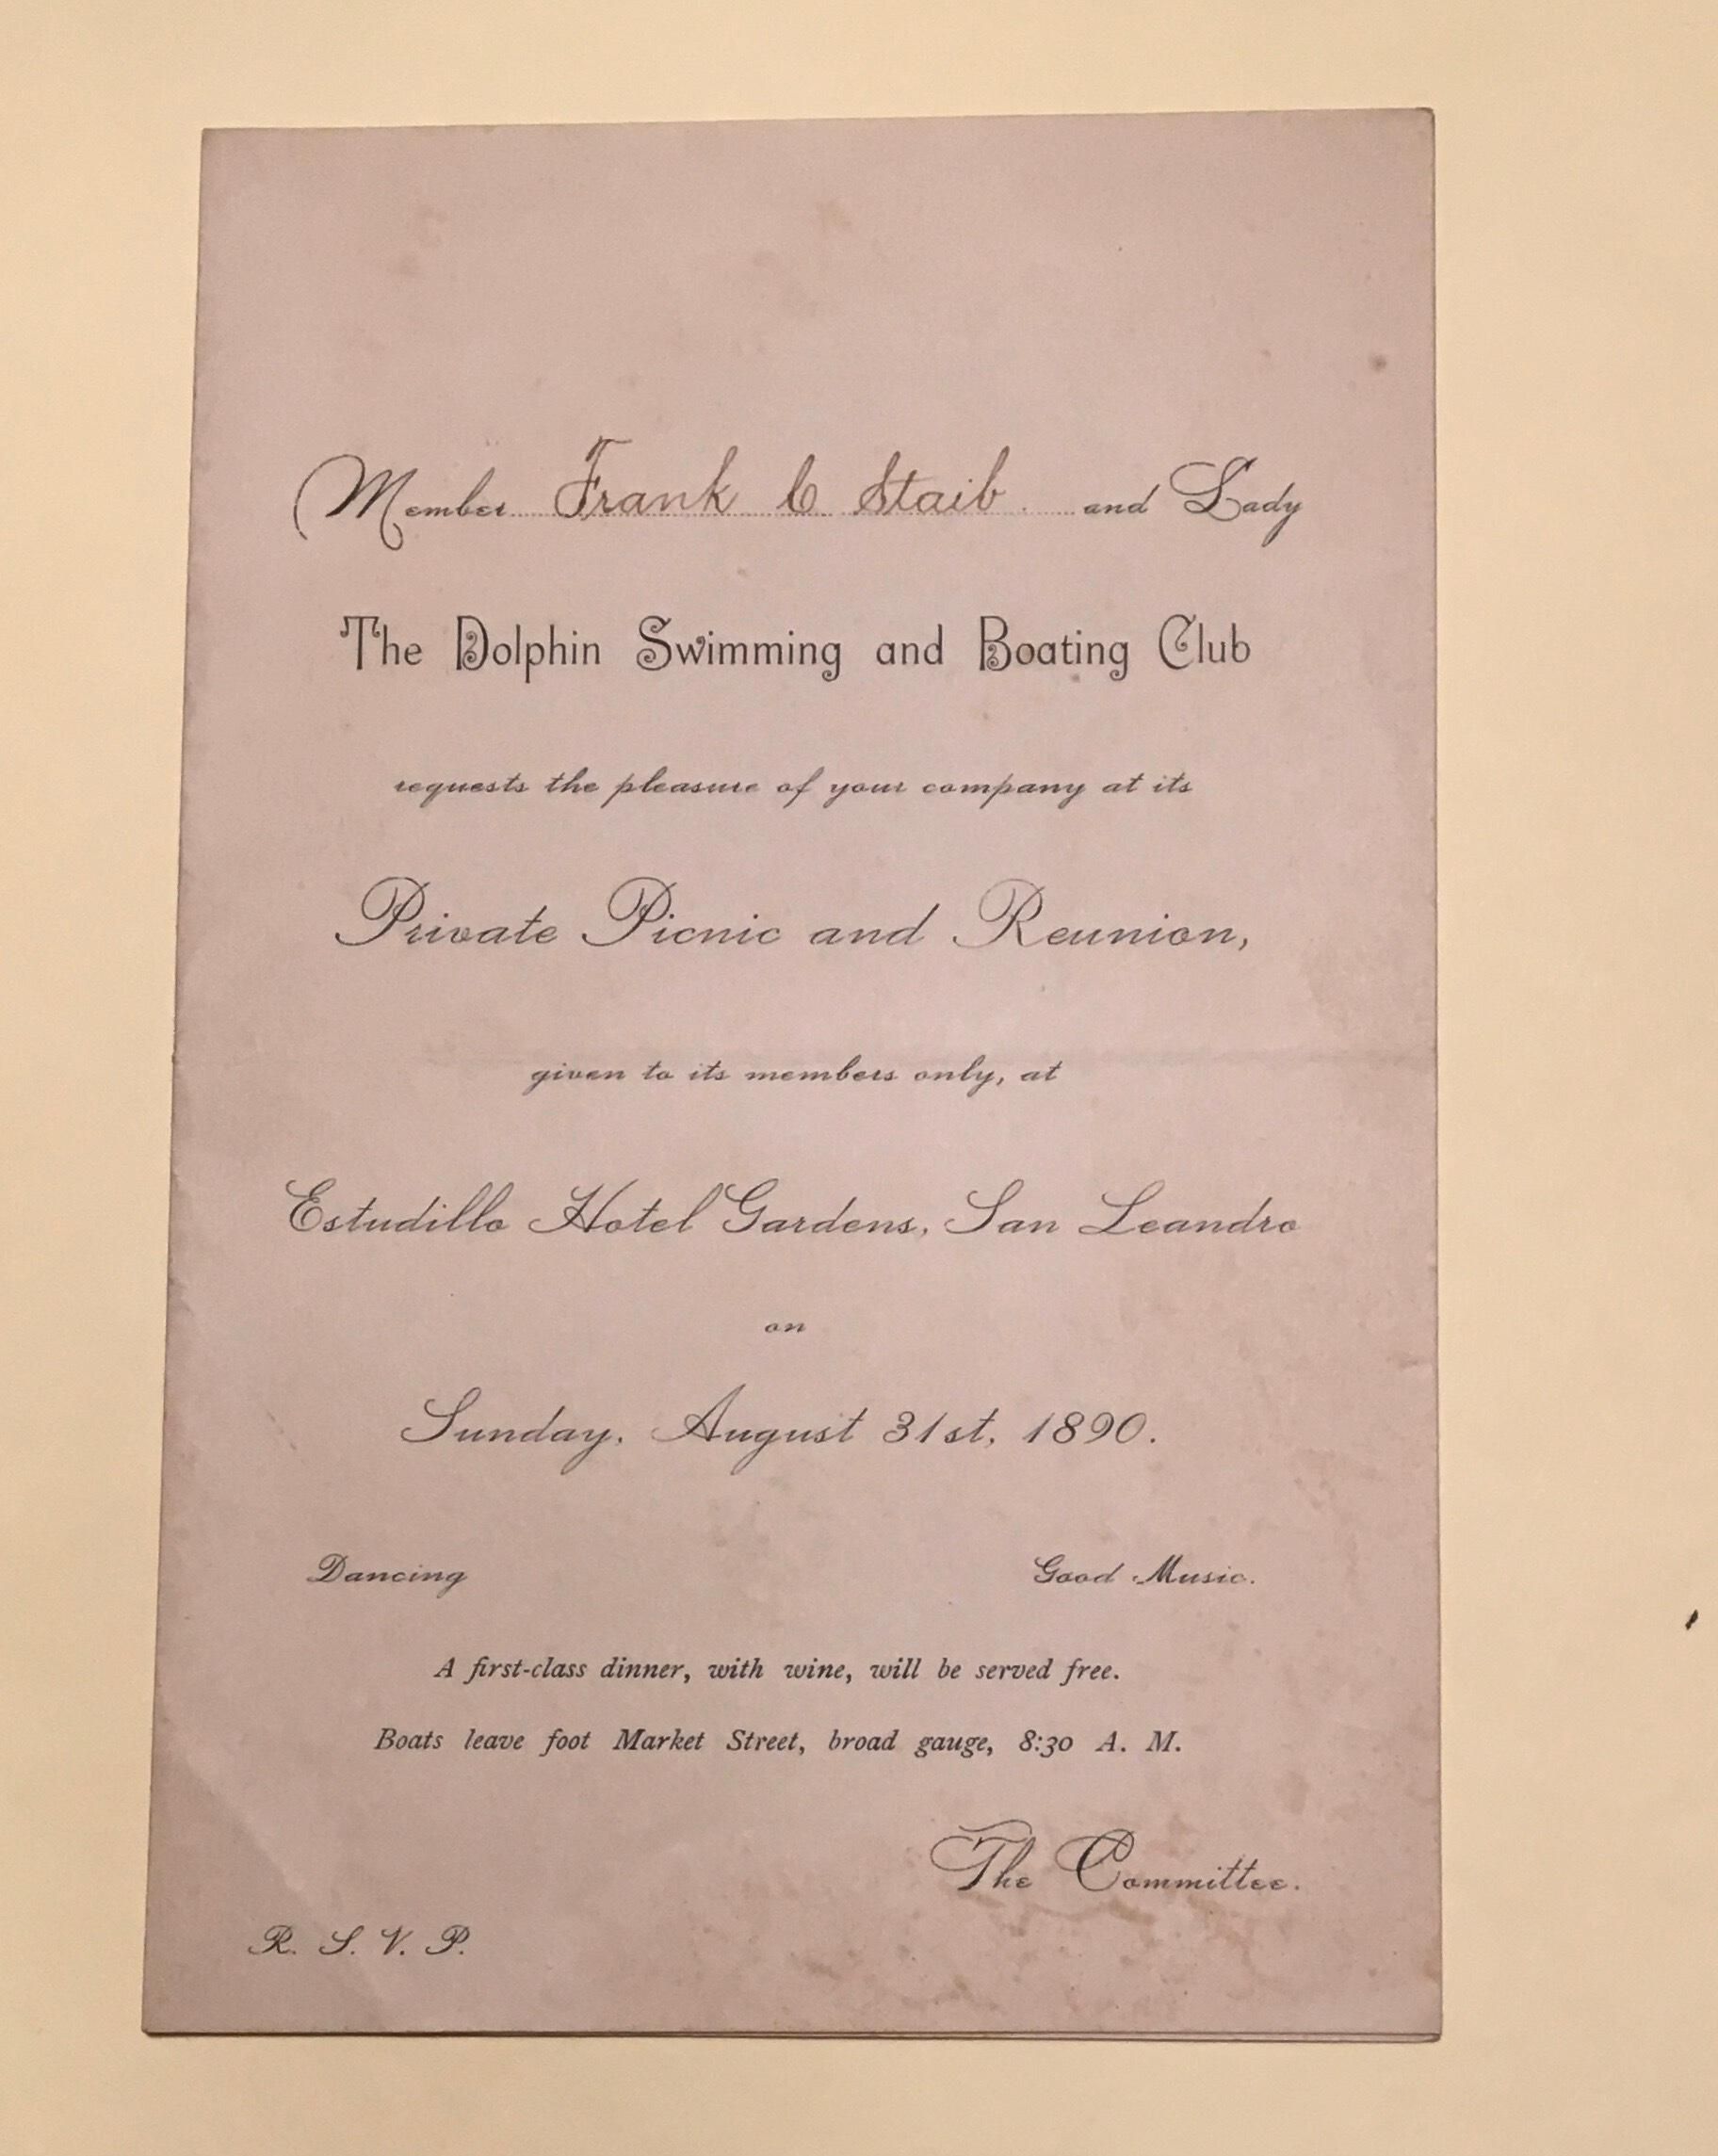 Member Frank C Staib and Lady
The Dolphin Swimming and Boating Club
requests the pleasure of your company at its
Private Picnic and Reunion,
given to its members only, at
Estudillo Hotel Gardens, San Leandro
on
Sunday, August 31st, 1890.
Dancing Good Music.
A first-class dinner, with wine, will be served free.
Boats leave foot Market Street, broad gauge, 8:30 A. M.
The Committee.
R. S. V. P.